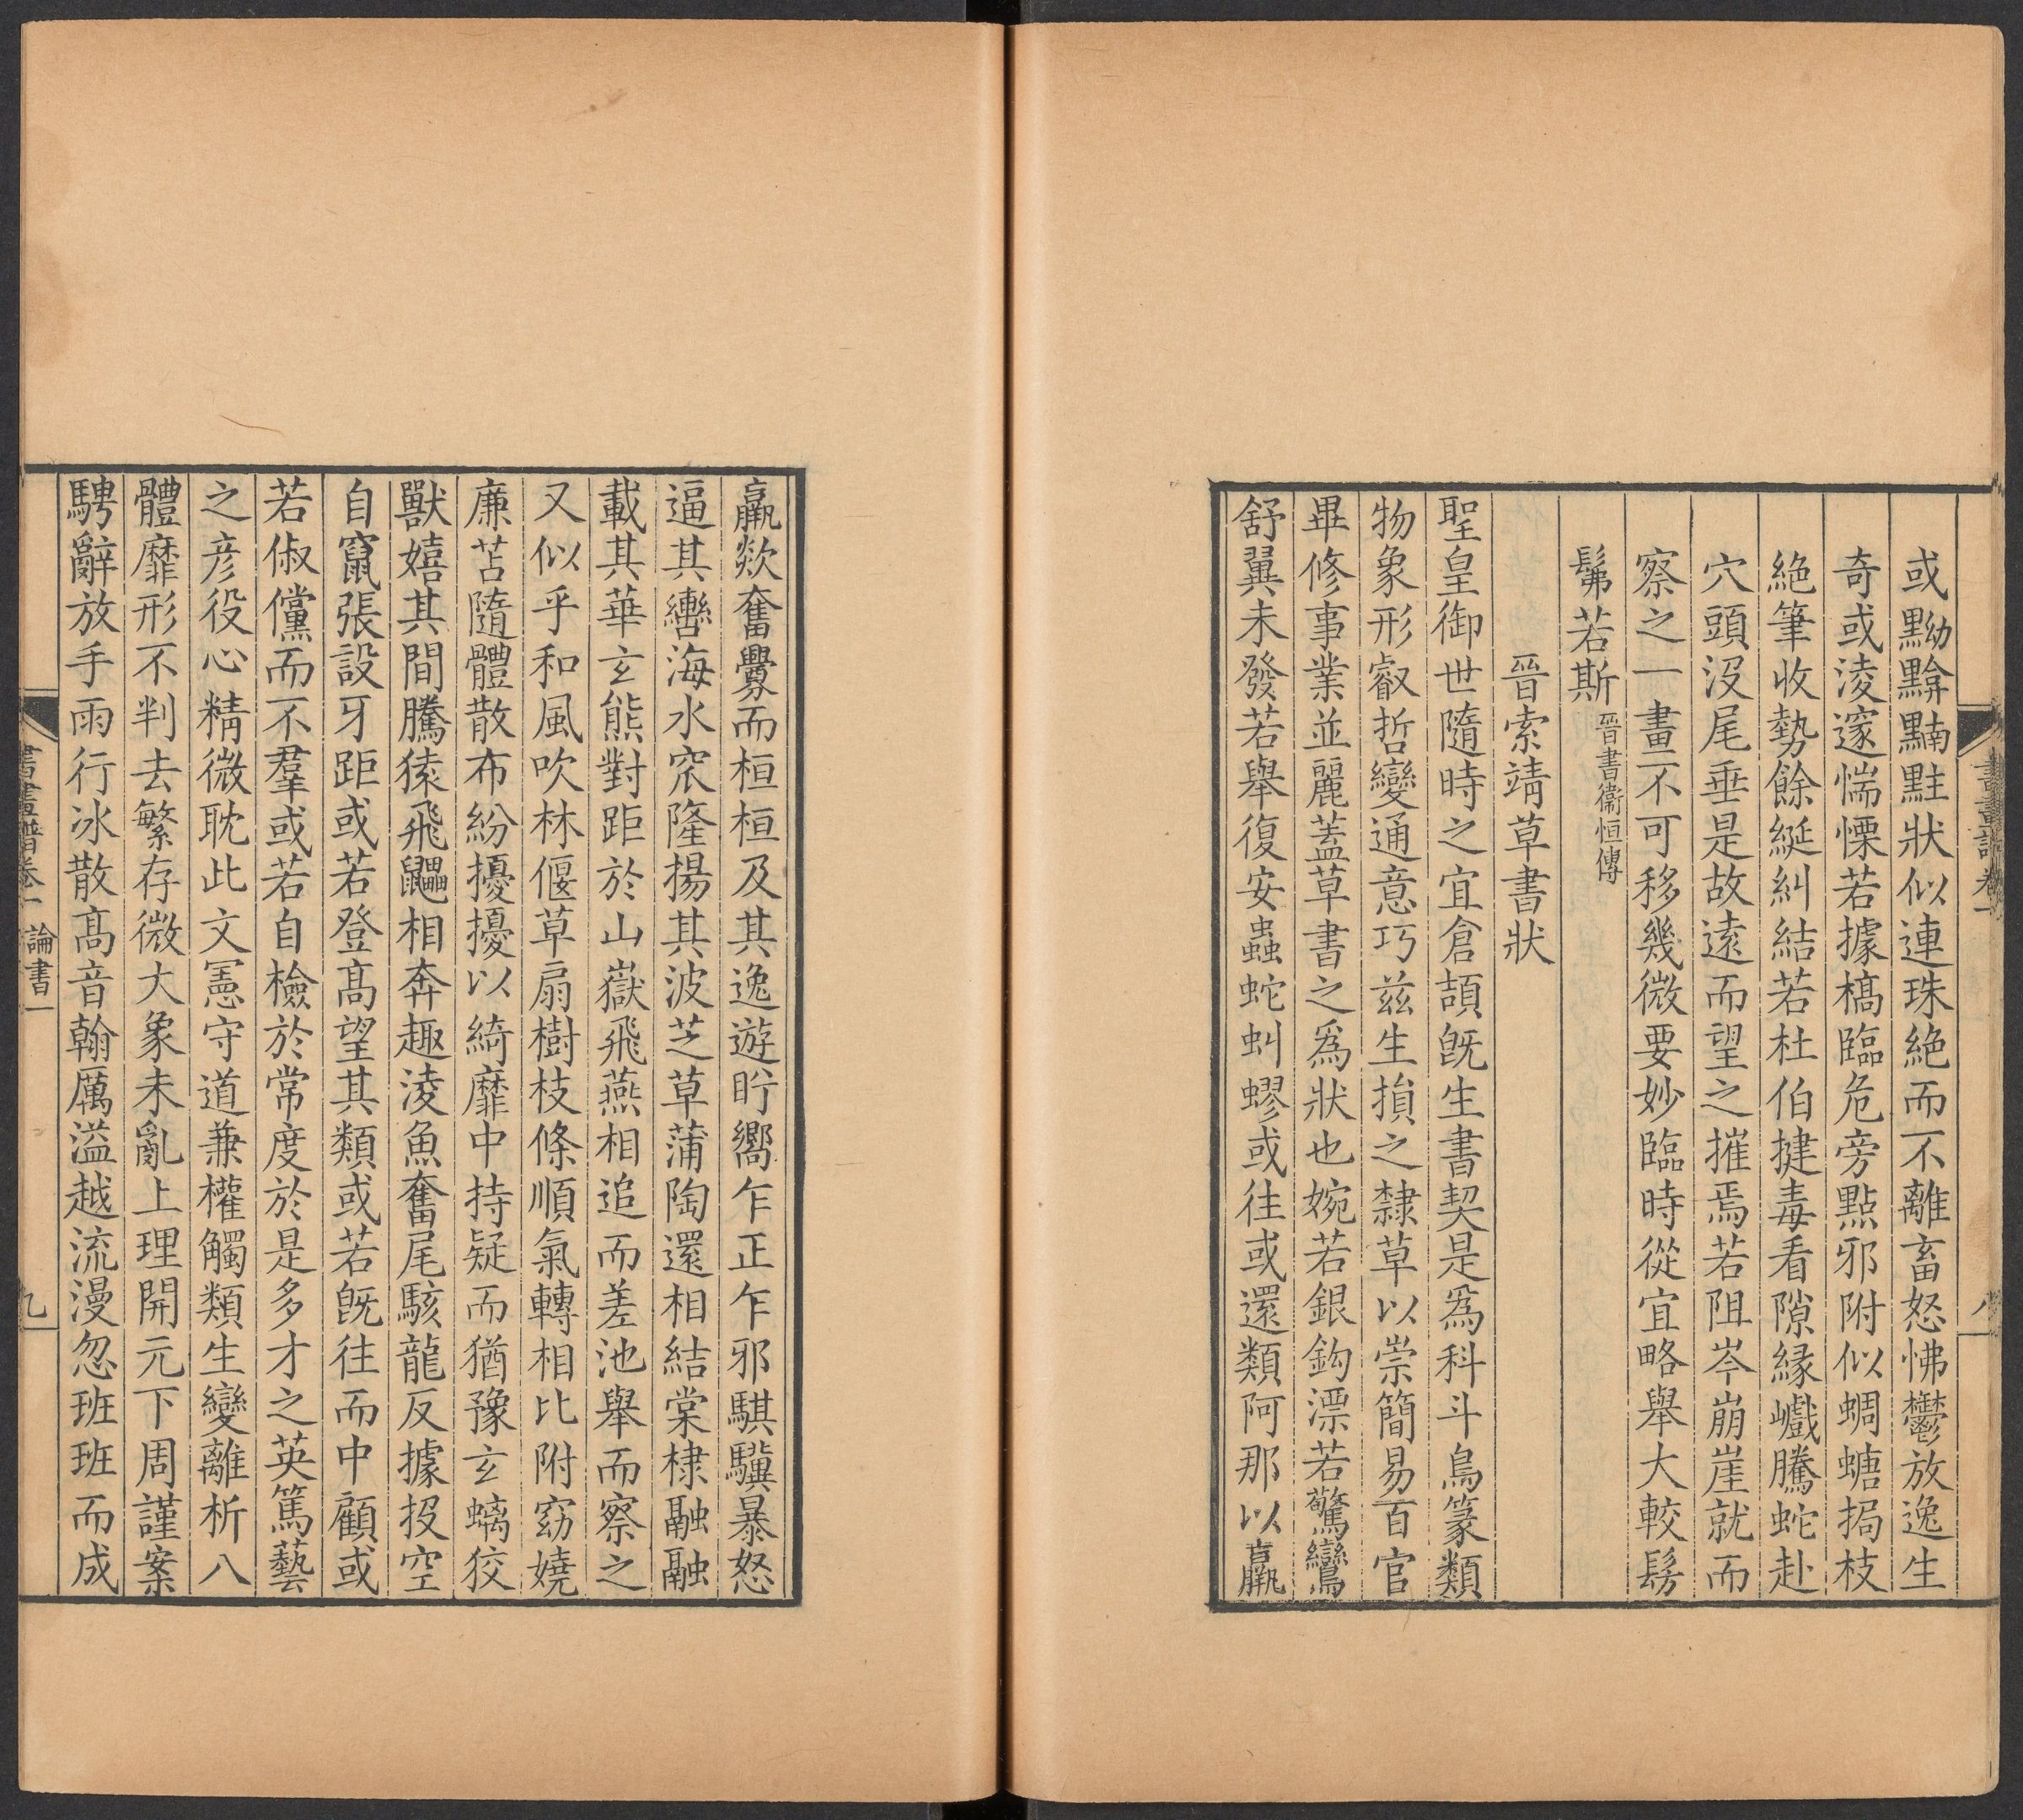 或黝黭黭黈狀似連珠絶而不離畜怒怫鬱放逸生
奇或淩邃惴慄若據槁臨危旁點邪附似蜩螗挶枝
絶筆收勢餘綖糾結若杜伯揵毒看隙縁巇騰蛇赴
穴頭沒尾垂是故遠而望之摧焉若阻岑崩崖就而
察之一畫不可移幾微要妙臨時從宜略舉大較髣
髴若斯晉書衞恒傳
晉索靖草書狀
聖皇御世隨時之宜倉頡旣生書契是爲科斗鳥篆類
物象形叡哲變通意巧兹生損之隸草以崇簡易百官
畢修事業並麗蓋草書之爲狀也婉若銀鈎漂若驚鸞
舒翼未發若舉復安蟲蛇虯蟉或往或還類阿那以羸
書畫譜卷一
八
羸欻奮釁而桓桓及其逸遊盻嚮乍正乍邪騏驥暴怒
逼其轡海水窊隆揚其波芝草蒲陶還相結棠棣融融
載其華玄熊對距於山嶽飛燕相追而差池舉而察之
又似乎和風吹林偃草扇樹枝條順氣轉相比附窈嬈
廉苫隨體散布紛擾擾以綺靡中持疑而猶豫玄螭狡
獸嬉其間騰猿飛鼺相奔趣淩魚奮尾駭龍反據投空
自竄張設牙距或若登髙望其類或若旣往而中顧或
若俶儻而不羣或若自檢於常度於是多才之英篤藝
之彦役心精微耽此文憲守道兼權觸類生變離析八
體靡形不判去繁存微大象未亂上理開元下周謹案
騁辭放手雨行冰散髙音翰厲溢越流漫忽班班而成
書畫譜卷一 論書一
九